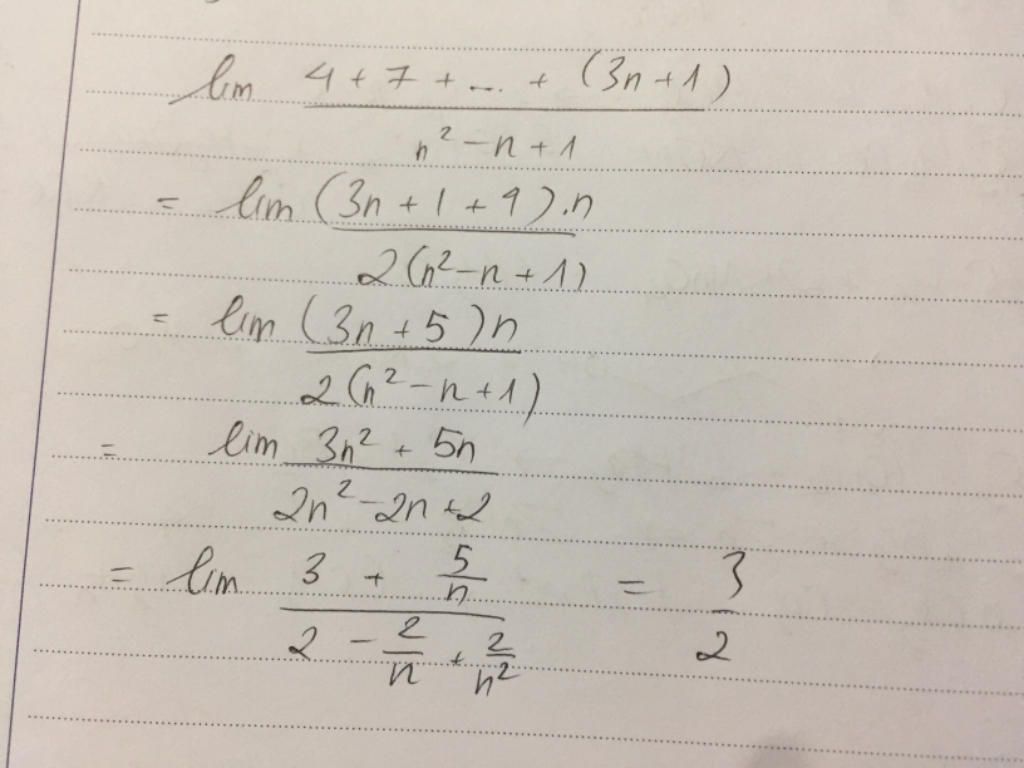 lim (4 + 7 + ... + (3n+1)) / (n² - n + 1)
= lim ((3n + 1 + 4).n) / (2(n² - n + 1))
= lim ((3n + 5)n) / (2(n² - n + 1))
= lim (3n² + 5n) / (2n² - 2n + 2)
= lim (3 + 5/n) / (2 - 2/n + 2/n²) = 3/2